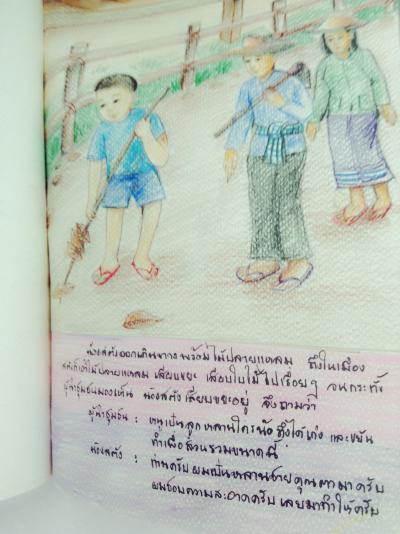 น้องสตังออกเดินจากร พร้อมไม้ปลายแหลม ถึงในเมือง
สตังก็เอาไม้ปลายแหลม เสียบขยะ เสียบใบไม้ไปเรื่อยๆ จนกระทั่ง
ผู้นำชุมชนมองเห็น น้องสตังเสียบขยะอยู่ จึงถามว่า
ผู้นำชุมชน : หนูเป็นลูกหลานใครน้อ ถึงได้เก่ง และขยัน
ทำเพื่อส่วนรวมขนาดนี้
น้องสตัง : ท่านครับ ผมเป็นหลานชายคุณตามาครับ
ผมชอบความสะอาดครับ เลยมาทำให้ครับ